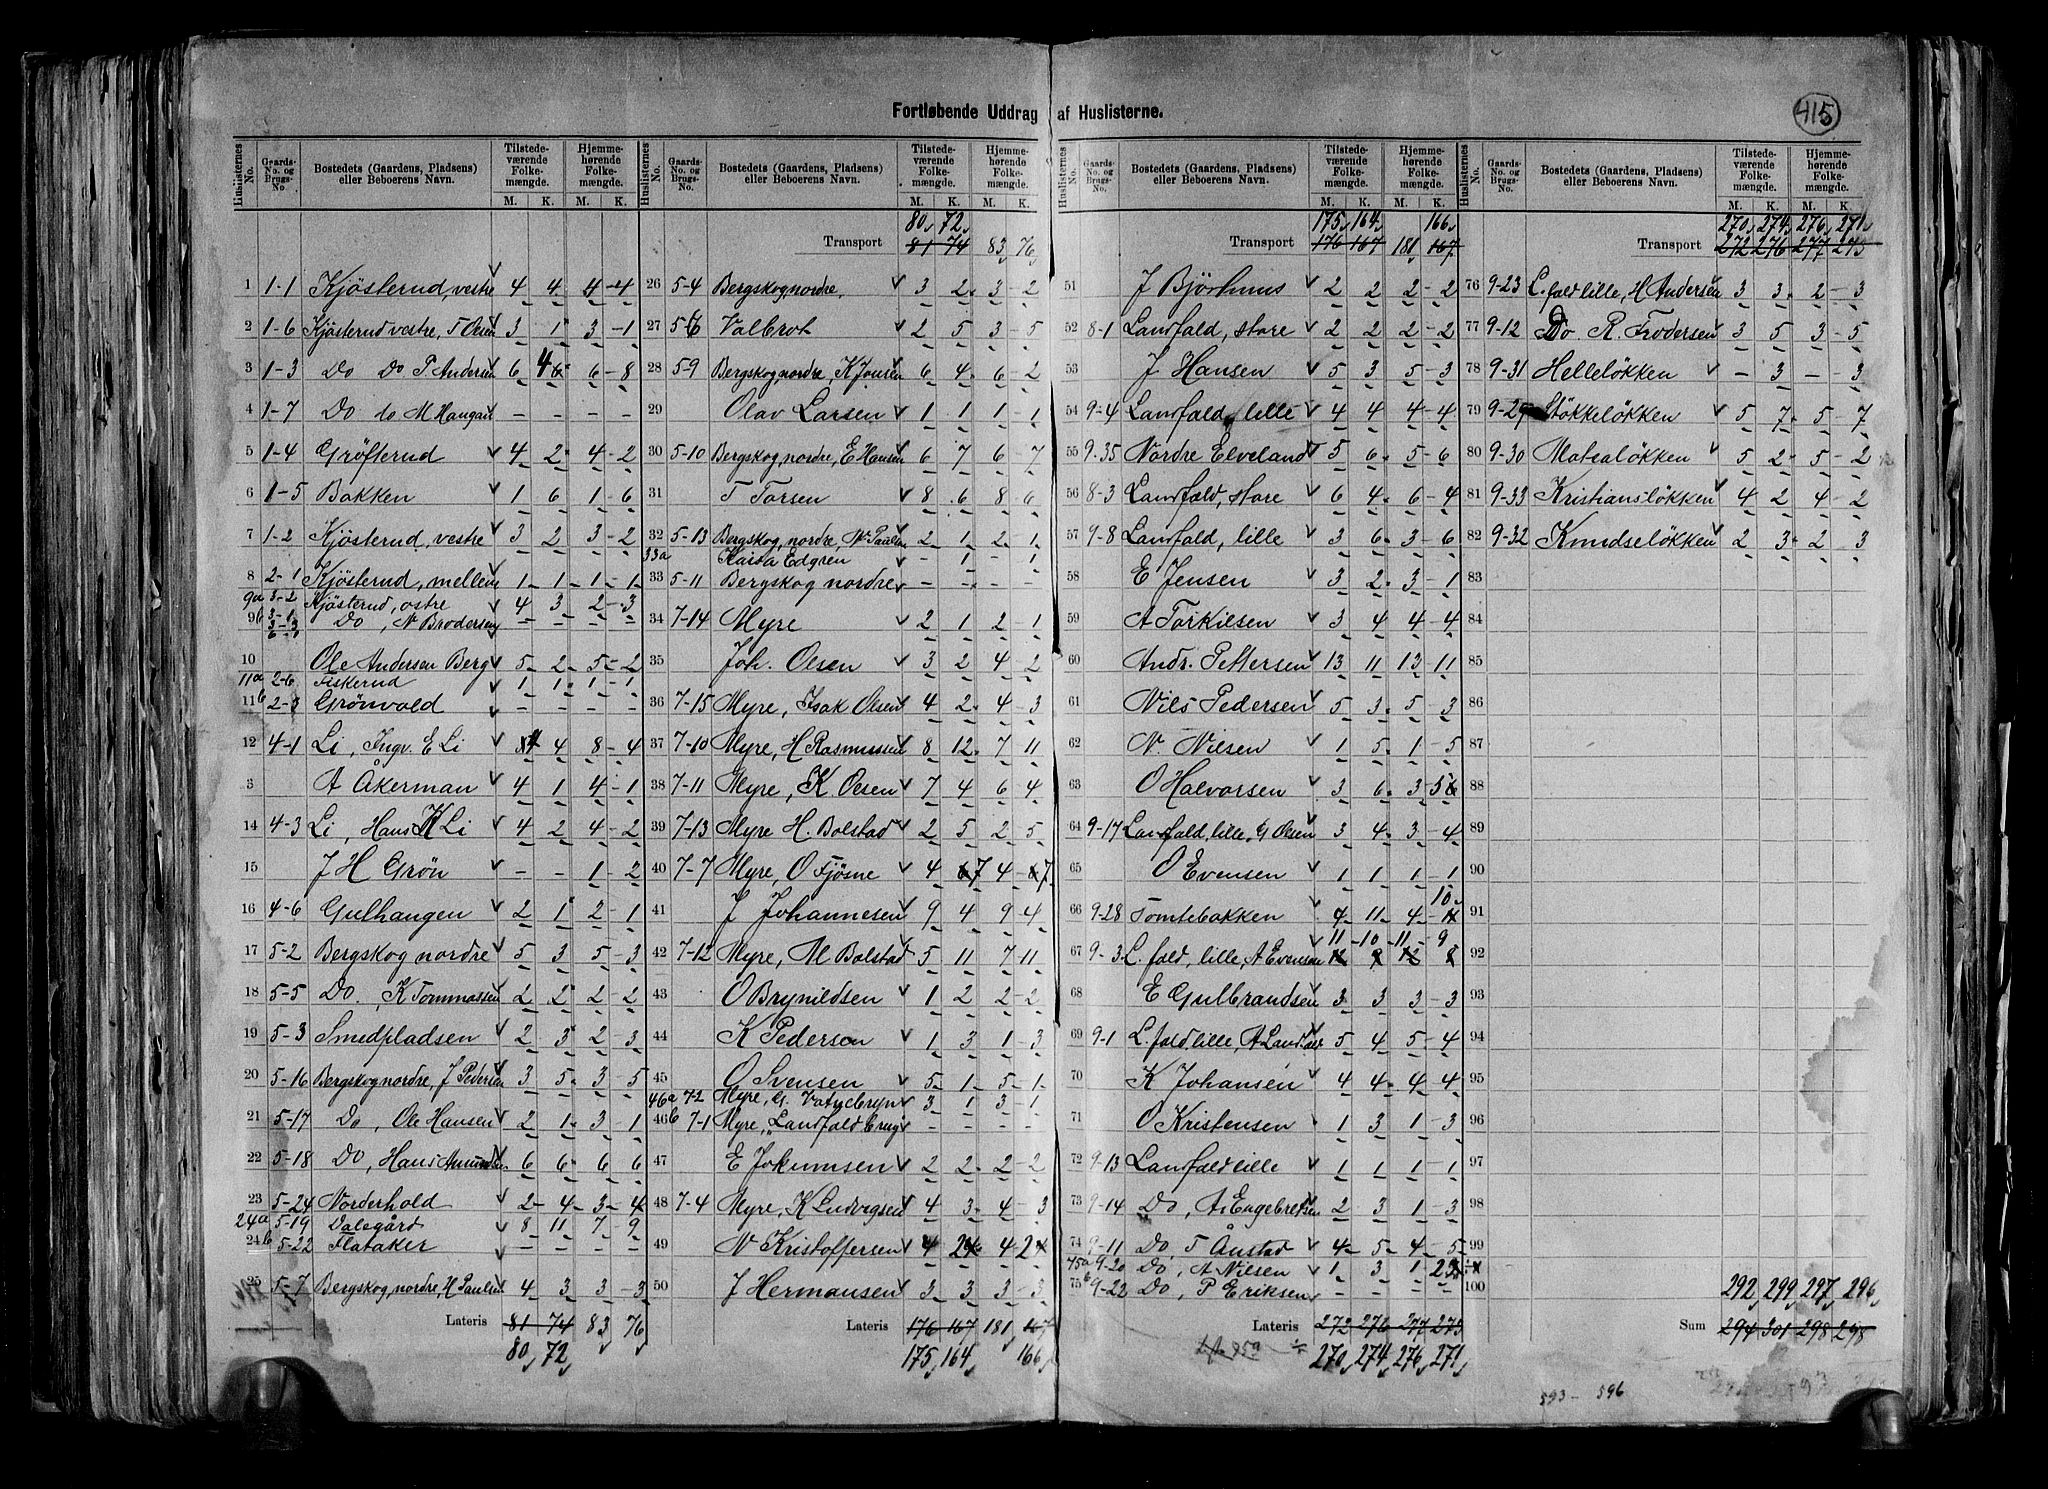 415
Fortløbende Uddrag af Huslisterne.
Huslisternes No. Gaards-No. og Brugs-No. Bostedets (Gaardens, Pladsens) eller Beboerens Navn. Tilstedeværende Folkemængde. Hjemmehørende Folkemængde. M. K. M. K.
1 1-1 Kjösterud, vestre 4 4 4-4
2 1-6 Kjösterud vestre, T Olsen 3 1 3-1
3 1-3 Do Do P Andersen 6 4 6-8
4 1-7 Do do M Haugan - - - -
5 1-4 Gröfterud 4 2 4-2
6 1-5 Bakken 1 6 1-6
7 1-2 Kjösterud, vestre 3 2 3-2
8 2-1 Kjösterud, mellem 1 1 1 1
9a 3-2 Kjösterud, östre 4 3 2-3
9b 3-1 3-3 6-1 Do, N Brodersen - - - -
10 Ole Andersen Berg 5 2 5-2
11a 2-6 Fiskerud 1 1 1-1
11b 2-3 Grönvold - - - -
12 4-1 Li, Ingv. E Li 4 4 8-4
3 A Åkerman 4 1 4-1
14 4-3 Li, Hans K Li 4 2 4-2
15 J H Grön - - 1 2
16 4-6 Gulhaugen 2 1 2-1
17 5-2 Bergskog nordre 5 3 5-3
18 5-5 Do, K Tommassen 2 2 2-2
19 5-3 Smedpladsen 2 3 2-3
20 5-16 Bergskog nordre, J Pedersen 3 5 3-5
21 5-17 Do, Ole Hansen 2 1 3-1
22 5-18 Do, Hans Amundsen 6 6 6 6
23 5-24 Norderhold 2 4 3-4
24a 5-19 Dalegård 8 11 7-9
24b 5-22 Flataker - - - -
25 5-7 Bergskog, nordre, H Paulsen 4 3 3-3
Lateris 81 74 83 76
80 72
Huslisternes No. Gaards-No. og Brugs-No. Bostedets (Gaardens, Pladsens) eller Beboerens Navn. Tilstedeværende Folkemængde. Hjemmehørende Folkemængde. M. K. M. K.
80 72
Transport 81 74 83 76
26 5-4 Bergskog, nordre, 3 2 3-2
27 5-6 Valbrot 2 5 3-5
28 5-9 Bergskog, nordre, K Jonsen 6 4 6-2
29 Olav Larsen 1 1 1-1
30 5-10 Bergskog, nordre, E Hansen 6 7 6-7
31 T Torsen 8 6 8-6
32 5-13 Bergskog, nordre, N Paulsen 2 1 2-1
33a Kaisa Edgren - 1 - 1
33 5-11 Bergskog nordre - - - -
34 7-14 Myre 2 1 2-1
35 Joh. Olsen 3 2 4 2
36 7-15 Myre, Isak Olsen 4 2 4-3
37 7-10 Myre, H Rasmussen 8 12 7 11
38 7-11 Myre, K Olsen 7 4 6 4
39 7-13 Myre H. Bolstad 2 5 2 5
40 7-7 Myre, O Fjösne 4 7 4-7
41 J Johannesen 9 4 9-4
42 7-12 Myre, M Bolstad 5 11 7-11
43 O Brynildsen 1 2 2-2
44 K Pederson 1 3 1-3
45 O Svensen 5 1 5-1
46a 7-2 Myre, G. Vatnebryn 3 1 3-1
46b 7-1 Myre, Landfald brug - - - -
47 E Jokumsen 2 2 2-2
48 7-4 Myre, K Ludvigsen 4 3 4-3
49 N Kristoffersen 4 2 4 2
50 J Hermansen 3 3 3-3
Lateris 176 167 181 167
175 164 166
Huslisternes No. Gaards-No. og Brugs-No. Bostedets (Gaardens, Pladsens) eller Beboerens Navn. Tilstedeværende Folkemængde. Hjemmehørende Folkemængde. M. K. M. K.
175 164 166
Transport 176 167 181 167
51 J Björhuus 2 2 2-2
52 8-1 Landfald, store 2 2 2-2
53 J Hansen 5 3 5-3
54 9-4 Landfald, lille 4 4 4-4
55 9-35 Nordre Elveland 5 6 5-6
56 8-3 Landfald, store 6 4 6-4
57 9-8 Landfald, lille 3 6 3-6
58 E Jensen 3 2 3-1
59 A Torkilsen 3 4 4-4
60 Andr. Pettersen 13 11 13-11
61 Nils Pedersen 5 3 5-3
62 N. Nilsen 1 5 1-5
63 O Halvorsen 3 6 3 5
64 9-17 Landfald, lille, G Olsen 3 4 3-4
65 O Evensen 1 1 1-1
66 9-28 Tomtebakken 4 11 4 10
67 9-3 L. fald, lille, A Evensen 11-10-11-9
68 E Gulbrandsen 3 3 3-3
69 9-1 L. fald lille, A Landfald 5 4 5-4
70 K Johansen 4 4 4 4
71 O Kristensen 1 3 1-3
72 9-13 Landfald lille 1 1 1-1
73 9-14 Do, A Engebretsen 2 3 1-3
74 9-11 Do, T Ånstad 4 5 4-5
75a 9-20 Do, A Nilsen 1 3 1 2
75b 9-22 Do, P Eriksen - - - -
Lateris 272 276 277 273
270 274 276 271
Huslisternes No. Gaards-No. og Brugs-No. Bostedets (Gaardens, Pladsens) eller Beboerens Navn. Tilstedeværende Folkemængde. Hjemmehørende Folkemængde. M. K. M. K.
270 274 276 271
Transport 272 276 277 273
76 9-23 L. fald lille, H Andersen 3 3 2-3
77 9-12 Do R. Frodersen 3 5 3-5
78 9-31 Helleløkken - 3 - 3
79 9-29 Støkkeløkken 5 7 5-7
80 9-30 Matealøkken 5 2 5-2
81 9-33 Kristiansløkken 4 2 4-2
82 9-32 Knudseløkken 2 3 2 3
83
84
85
86
87
88
89
90
91
92
93
94
95
96
97
98
99
100
292 299 297 296
Sum 294 301 298 298
593 - 596